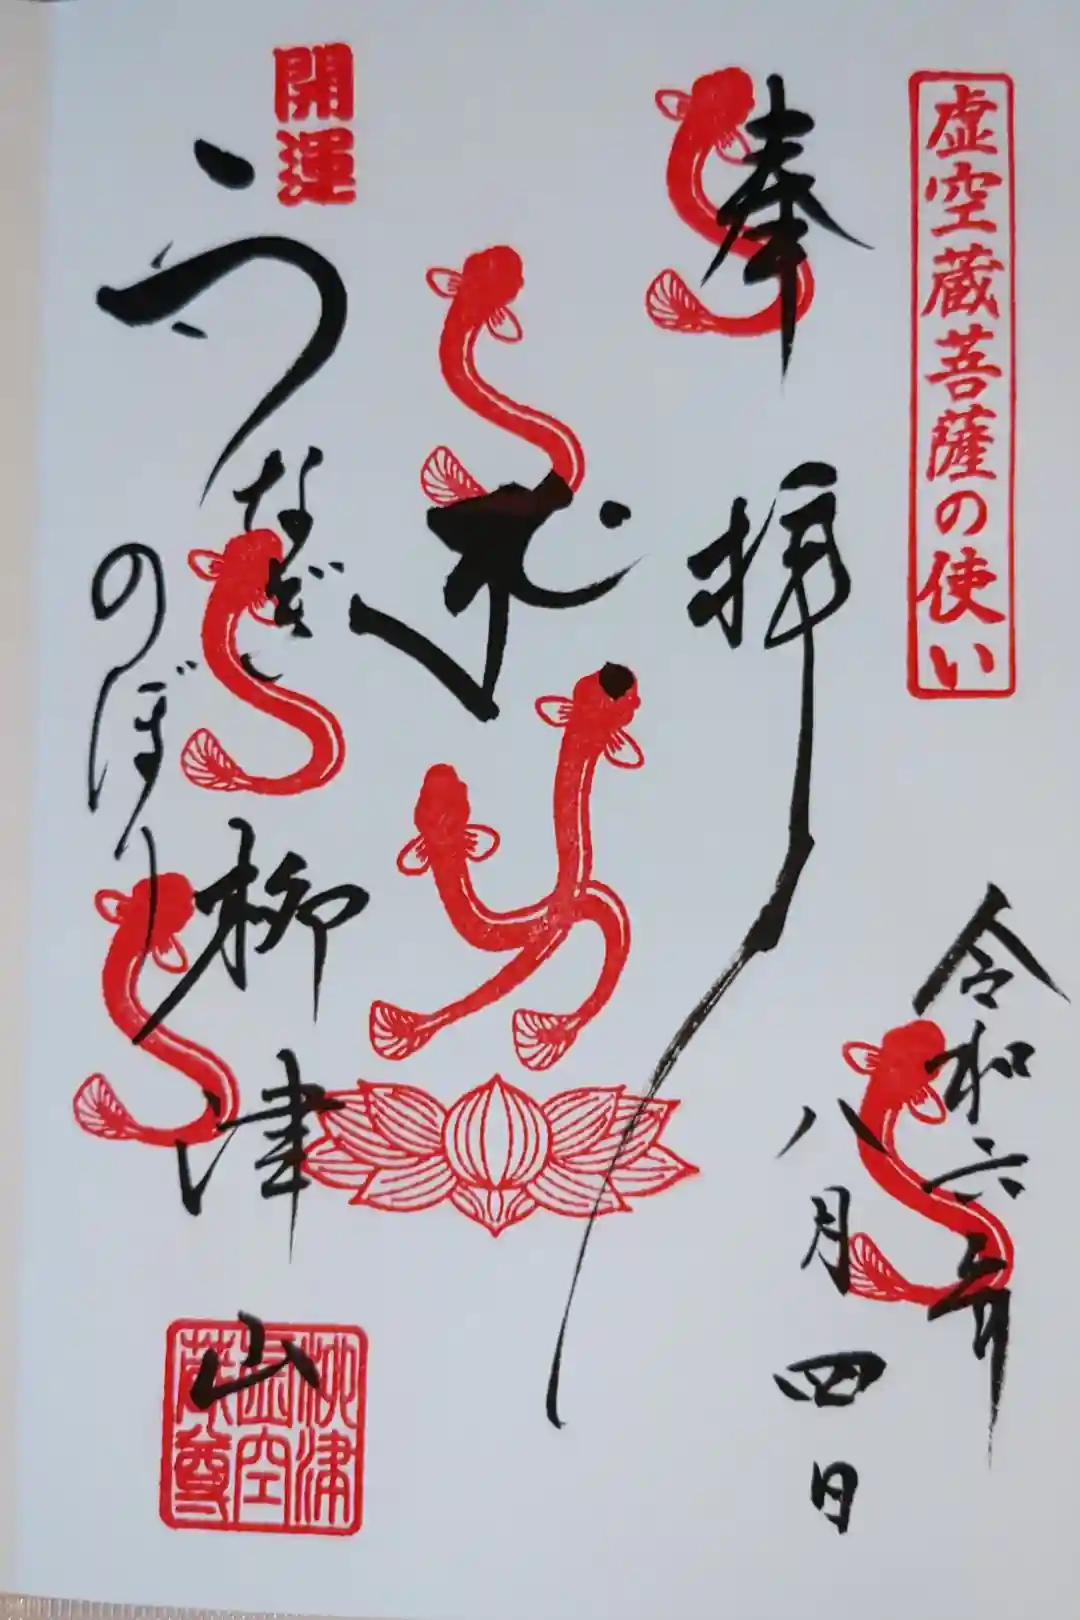 虚空蔵菩薩の使い
奉拝
令和六年
八月四日
開運
うなぎ
のぼり
柳津山
柳津
虚空
蔵尊